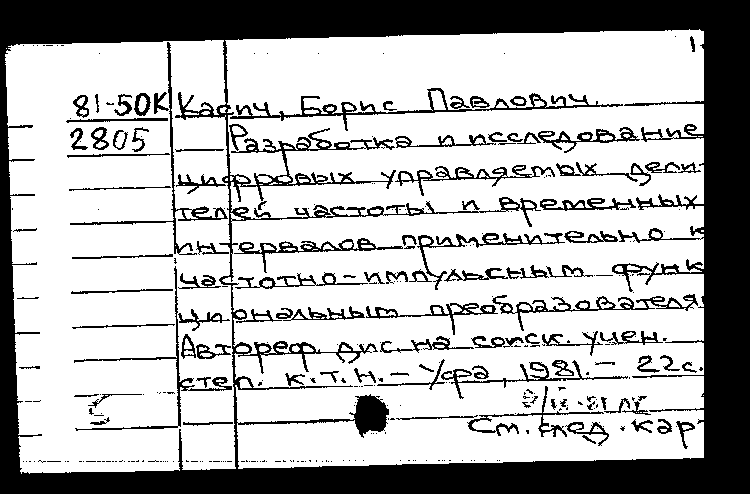 81-50К Касич, Борис Павлович.
2805 Разработка и исследование
цифровых управляемых дели-
телей частоты и временных
интервалов применительно к
частотно-импульсным функ
циональным преобразователя
Автореф. дис. на соиск. учен.
степ. к.т.н. – Уфа, 1981. – 22с.
См. след. кар